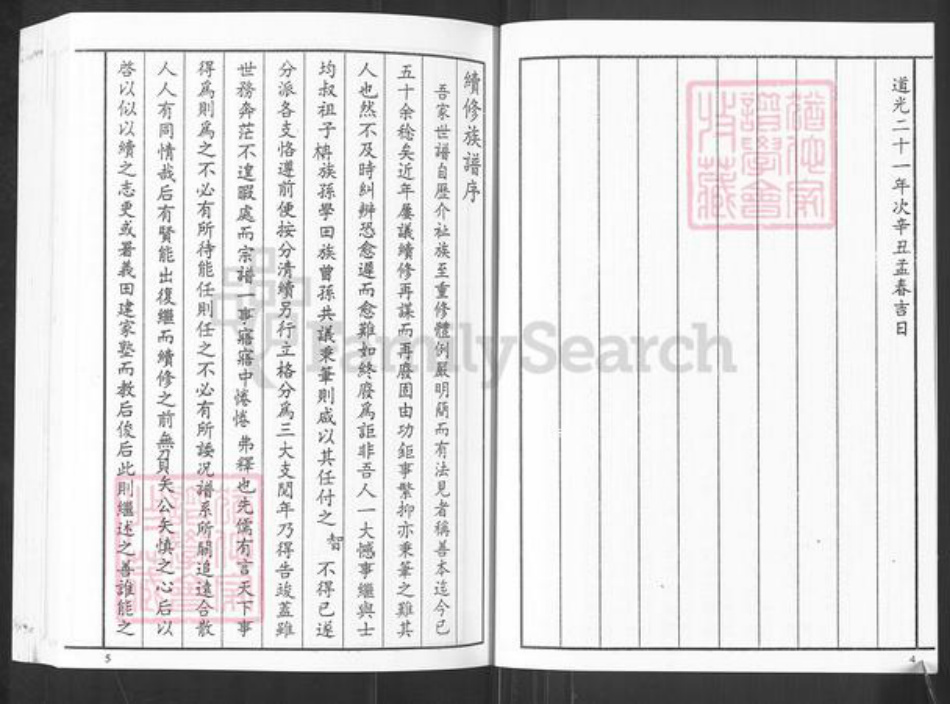 道光二十一年次辛丑孟春吉日
4
續修族譜序
吾家世譜自歷介祉族至重修體例嚴明簡而有法見者稱善本迄今已
五十余稔矣近年屢議續修再謀而再廢固由功鉅事繁抑亦秉筆之難其
人也然不及時糾辦恐愈遲而愈難如終廢為詎非吾人一大憾事繼與士
均叔祖子楠族孫學回族曾孫共議秉筆則咸以其任付之智不得已遂
分派各支恪遵前便按分清續另行立格分為三大支閱年乃得告竣蓋雖
世務奔茫不遑暇處而宗譜一事寤寐中惓惓弗釋也先儒有言天下事
得為則為之不必有所待能任則任之不必有所諉况譜系所關追遠合散
人人有同情哉后有賢能出復繼而續修之前無負矣公矣慎之心后以
啓以似以續之志更或置義田建家塾而教后俊后此則繼述之善誰能之
5
FamilySearch